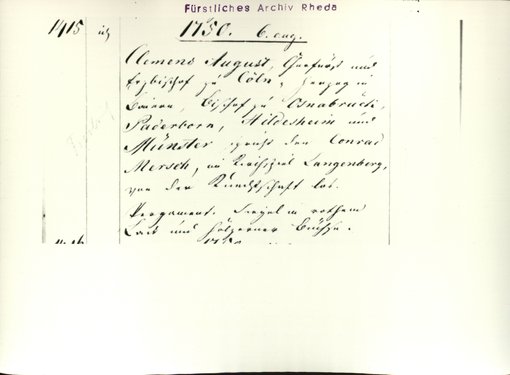 Fürstliches Archiv Rheda
1415
1750. 6. aug.
Clemens August, Churfürst und
Erzbischof zu Cöln, Herzog in
Baiern, Bischof zu Osnabrück,
Paderborn, Hildesheim und
Münster spricht den Conrad
Mersch, im Kirchspiel Langenberg,
von der Knechtschaft los.
Pergament. Siegel in rothem
Lack und hölzerner Büchse.